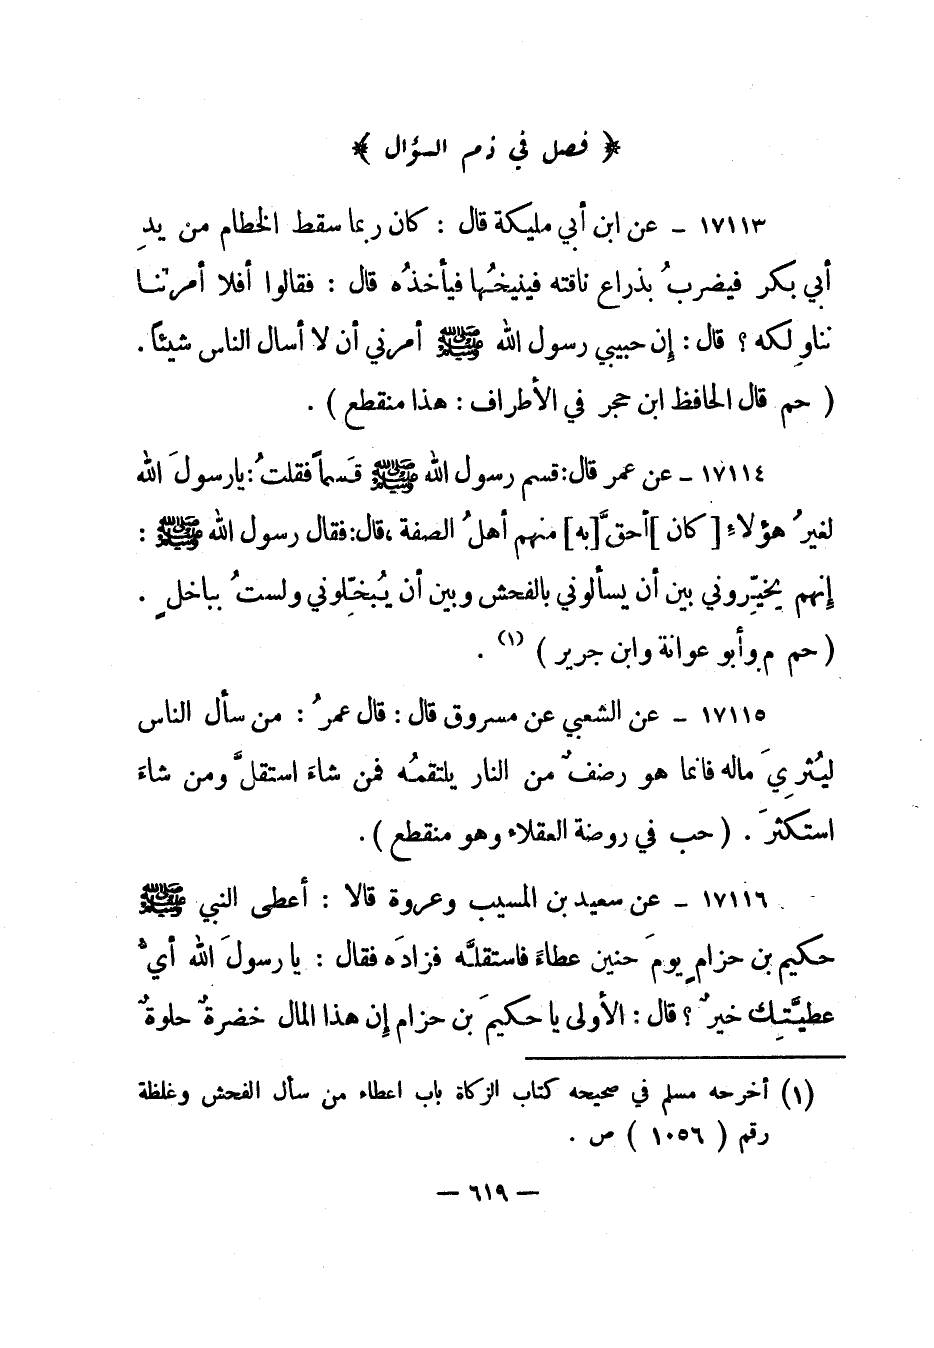 ﴿ فصل في ذم السؤال ﴾
١٧١١٣ ـ عن ابن أبي مليكة قال : كان ربما سقط الخطام من يدِ
أبي بكر فيضربُ بذراع ناقته فينيخُها فيأخذُه قال : فقالوا أفلا أمرتنا
نناوِلكه ؟ قال : إن حبيبي رسول الله ﷺ أمرني أن لا أسال الناس شيئاً .
( حم قال الحافظ ابن حجر في الأطراف : هذا منقطع ) .
١٧١١٤ ـ عن عمر قال : قسم رسول الله ﷺ قَسماً فقلتُ : يارسولَ الله
لغيرُ هؤلاءِ [ كان ] أحقَّ [به] منهم أهلُ الصفة ، قال : فقال رسول الله ﷺ :
إنهم يخيّروني بين أن يسألوني بالفحش وبين أن يُبخّلوني ولستُ بباخلٍ .
( حم م وأبو عوانة وابن جرير ) (١) .
١٧١١٥ ـ عن الشعبي عن مسروق قال : قال عمرُ : من سأل الناس
ليُثرِيَ ماله فانما هو رضفٌ من النار يلتقمُه فمن شاءَ استقلَّ ومن شاءَ
استكثرَ . ( حب في روضة العقلاء وهو منقطع ) .
١٧١١٦ ـ عن سعيد بن المسيب وعروة قالا : أعطى النبي ﷺ
حكيم بن حزامٍ يومَ حنين عطاءً فاستقلَّه فزادَه فقال : يا رسولَ الله أيُّ
عطيَّتِك خيرٌ ؟ قال : الأولى يا حكيمَ بن حزام إن هذا المال خضرةٌ حلوةٌ
(١) أخرجه مسلم في صحيحه كتاب الزكاة باب اعطاء من سأل الفحش وغلظة
رقم ( ١٠٥٦ ) ص .
— ٦١٩ —